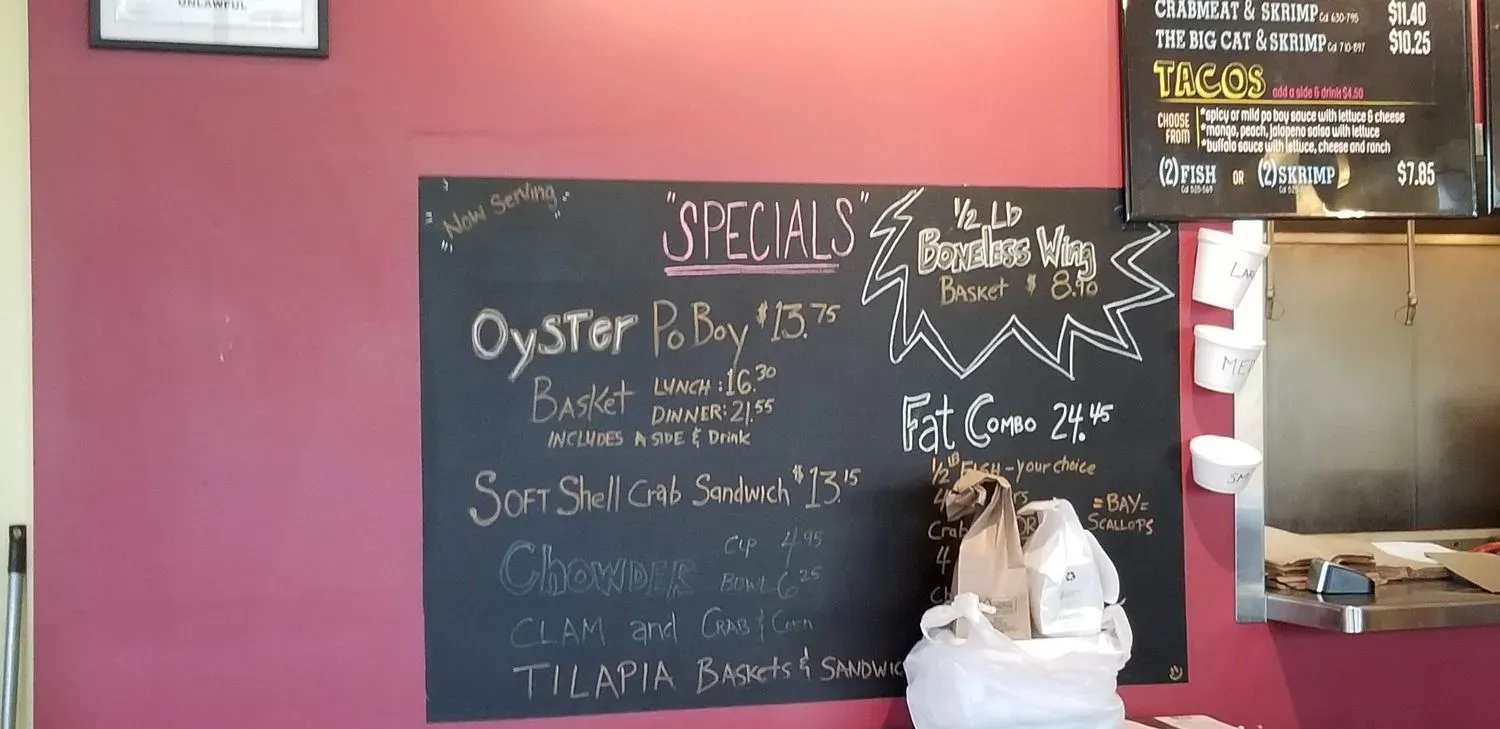 UNLAWFUL
CRABMEAT & SKRIMP Cal 630-795 $11.40
THE BIG CAT & SKRIMP Cal 710-897 $10.25
TACOS add a side & drink $4.50
CHOOSE FROM
*spicy or mild po boy sauce with lettuce & cheese
*mango, peach, jalapeno salsa with lettuce
*buffalo sauce with lettuce, cheese and ranch
(2) FISH OR (2) SKRIMP $7.85
Cal 525-569 Cal
"Now Serving"
"SPECIALS"
1/2 LB
BONELESS WING
BASKET $8.90
OYSTER PO BOY $13.75
BASKET LUNCH: 16.30
DINNER: 21.55
INCLUDES A SIDE & Drink
SOFT Shell Crab Sandwich $13.15
CHOWDER CUP 4.95
BOWL 6.25
CLAM and CRAB & Corn
TILAPIA BASKETS & SANDWIC
Fat COMBO 24.45
1/2 LB FISH - your choice
4
Crab OR
4
=BAY=
SCALLOPS
LAR
MED
SM